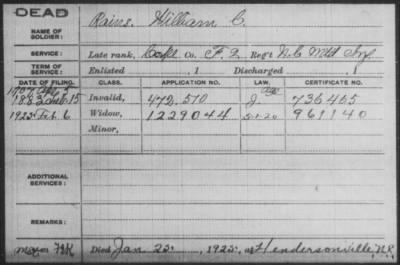 DEAD
NAME OF SOLDIER: Rains, William C.
SERVICE: Late rank, Co. F. 2 Reg't N.C. Mtd Inf.
TERM OF SERVICE: Enlisted , 1 Discharged , 1
DATE OF FILING. CLASS. APPLICATION NO. LAW. CERTIFICATE NO.
Invalid, 472,510 736465
1925 Feb. 6 Widow, 1229044 5-1-20 961140
Minor,
ADDITIONAL SERVICES:
REMARKS:
Died Jan 25, 1925, at Hendersonville, N.C.